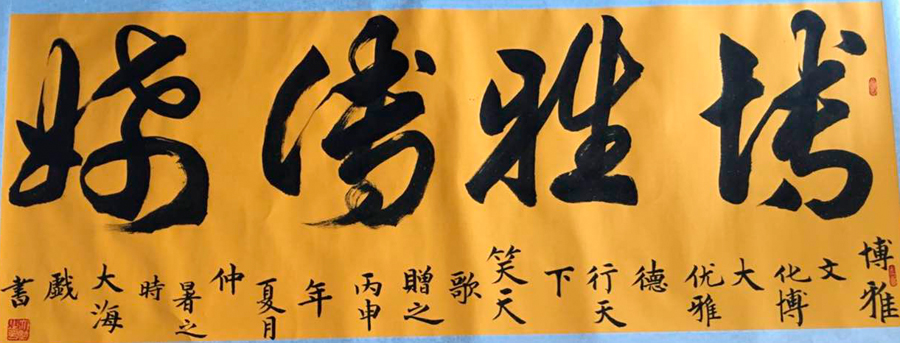 博雅傳媒
博雅
文
化博
大
优雅
德
行天
下
笑天
歌
贈之
丙申
年
夏月
仲
暑之
時
大海
戯
書